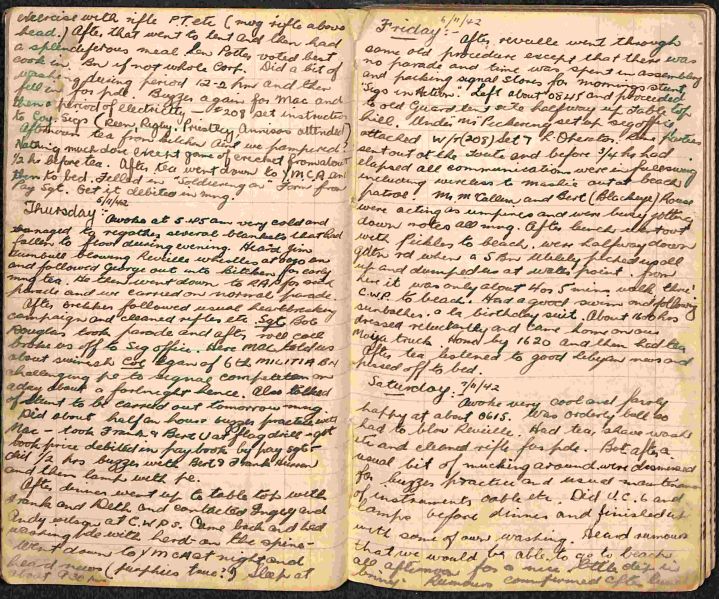 exercise with rifle P.T. etc (mvg rifle above
head.) After that went to tent and then had
a splendiferous meal Len Potter voted best
cook in Bn if not whole Corp. Did a bit of
washing during period 12-2 hrs and then
fell in for pde. Buzzer again for Mac and
then a period of electricity - 208 set instructor
to Coy. Sigs (Keen, Rigby, Priestley, Annison attended)
Afternoon tea from kitchen and we pampered?
Nothing much done except game of cricket from about
1/2 hrs before tea. After tea went down to YMCA and
then to bed. Filled in "Soldiering on" Form from
Pay Sgt. Get it debited in mng.
5/11/42
Thursday:- Awoke at 5.45 am very cold and
managed to regather several blankets that had
fallen to floor during evening. Heard Jim
Turnbull blowing Reveille whistles at 0630 an
and followed George out into kitchen for early
mng tea. He then went down to RAP for sick
parade and we carried on normal parade.
After brekker followed usual heartbreaking
campaign and cleaned rifles etc. Sgt Bob
Douglas took parade and after roll call
broke us off to Sig office. Here Mac tells us
about swinish Coy Logan of 6th MILITIA BN
challenging pl to signal competition on
a day about a fortnight hence. Also talked
of stunt to be carried out tomorrow mng
Did about half an hour buzzer practice with
Mac - took Frank & Bert U at flag drill & got
book price debited in paybook by pay sgt-
did 1/2 hrs buzzer with Bert & Frank
and then lamp with pl.
After dinner went up to table top with
Frank and Keith and contacted and
Andy at C.W.P.S. Came back and had
washing pde with Lerd- on the spine-
Went down to YMCA at night and
heard news (pamphlets true?) Sleep at
about 9.30 hrs
6/11/42
Friday:-
After reveille went through
same old procedure except that there was
no parade and time was spent in assembling
and packing signal stores for mornings stunt
"Sigs in Action". Left about 0845 and proceeded
to old Guard tent site halfway up table top
hill. Under Mr Pickering set up sig office
attached W/T (208) Set & L Operator. Line Parties
sent out at the Toute and before 3/4 hr had
elapsed all communications were in full swing
including wireless to Maslie out at beach
patrol. Mr McCallum and Bert (Blackeye) Rouse
were acting as umpires and were busy jotting
down notes all mng. After lunch set out
with Pickles to beach, were halfway down
rd when a 5 Bn Utility picked up all
up and dumped us at water point. From
here it was only about 4 or 5 mins walk thro'
C.W.P. to beach. Had a good swim and following
sunbather a la birthday suit. About 1600 hrs
dressed reluctantly and came home on our
truck. Home by 1620 and then had tea
After tea listened to good Libyan news and
pissed off to bed.
Saturday:- 7/11/42
Awoke very cool and fairly
happy at about 0615. Was orderly bell so
had to blow Reveille. Had tea, shave wash
etc and cleaned rifle for pde. But after a
usual bit of mucking around were dismissed
for buzzer practice and usual maintenance
of instruments cable etc. Did U.C. 6 and
lamps before dinner and finished up
with some of our washing. Heard rumours
that we would be able to go to beach
all afternoon for a nice little dip in
briny. Rumours confirmed after lunch